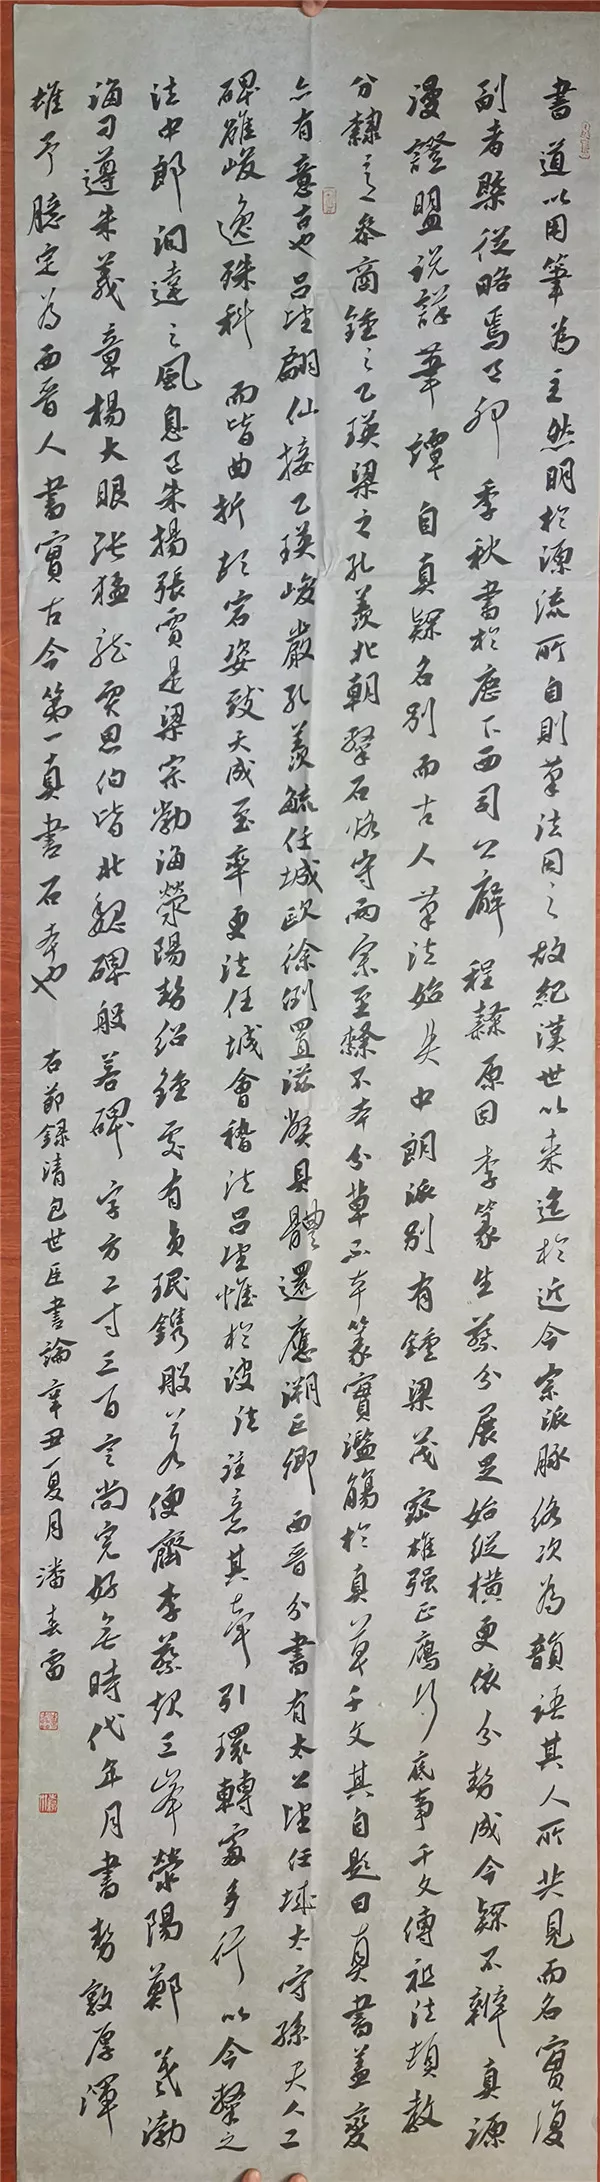 書道以用筆為主然明於源流所自則筆法因之故紀漢世以來迄於近今宗派脈絡次為韻語其人所共見而名實復
副者槩從略焉己卯季秋書於歷下西司公廨程隸原因李篆生蔡分展足始縱橫更依分勢成今隸不辨真源
漫證盟說詳筆譚自真隸名別而古人筆法始失中郎派別有鍾梁茂密雄强正雁行底事千文傳祖法頓教
分隸之參商鍾之乙瑛梁之孔羨北朝槩石恪守兩宗至隸不本分草不本篆實濫觴於真草千文其自題曰真書蓋變
亦有意古也呂望翩仙接乙瑛峻嚴孔羨毓任城歐徐倒置滋聚具體還應溯巨卿西晉分書有太公望任城太守孫夫人二
碑雖峻逸殊科而皆曲折頓宕姿致天成至率更法任城會稽法呂望惟於波法注意其牽引環轉處多行以今槩之
法中郎洞達之風息已朱揚張賈是梁宗勃海滎陽勢紹鍾更有貞珉鐫般若便齊李蔡起三峰滎陽鄭羲勃
海刁遵朱義章楊大眼張猛龍賈思伯皆北魏碑般若碑字方二寸三百言尚完好無時代年月書勢敦厚渾
雄予臆定為西晉人書實古今第一真書石本也
右節錄清包世臣書論辛丑夏月潘春雷